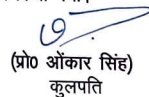 (प्रो0 ओंकार सिंह)
कुलपति